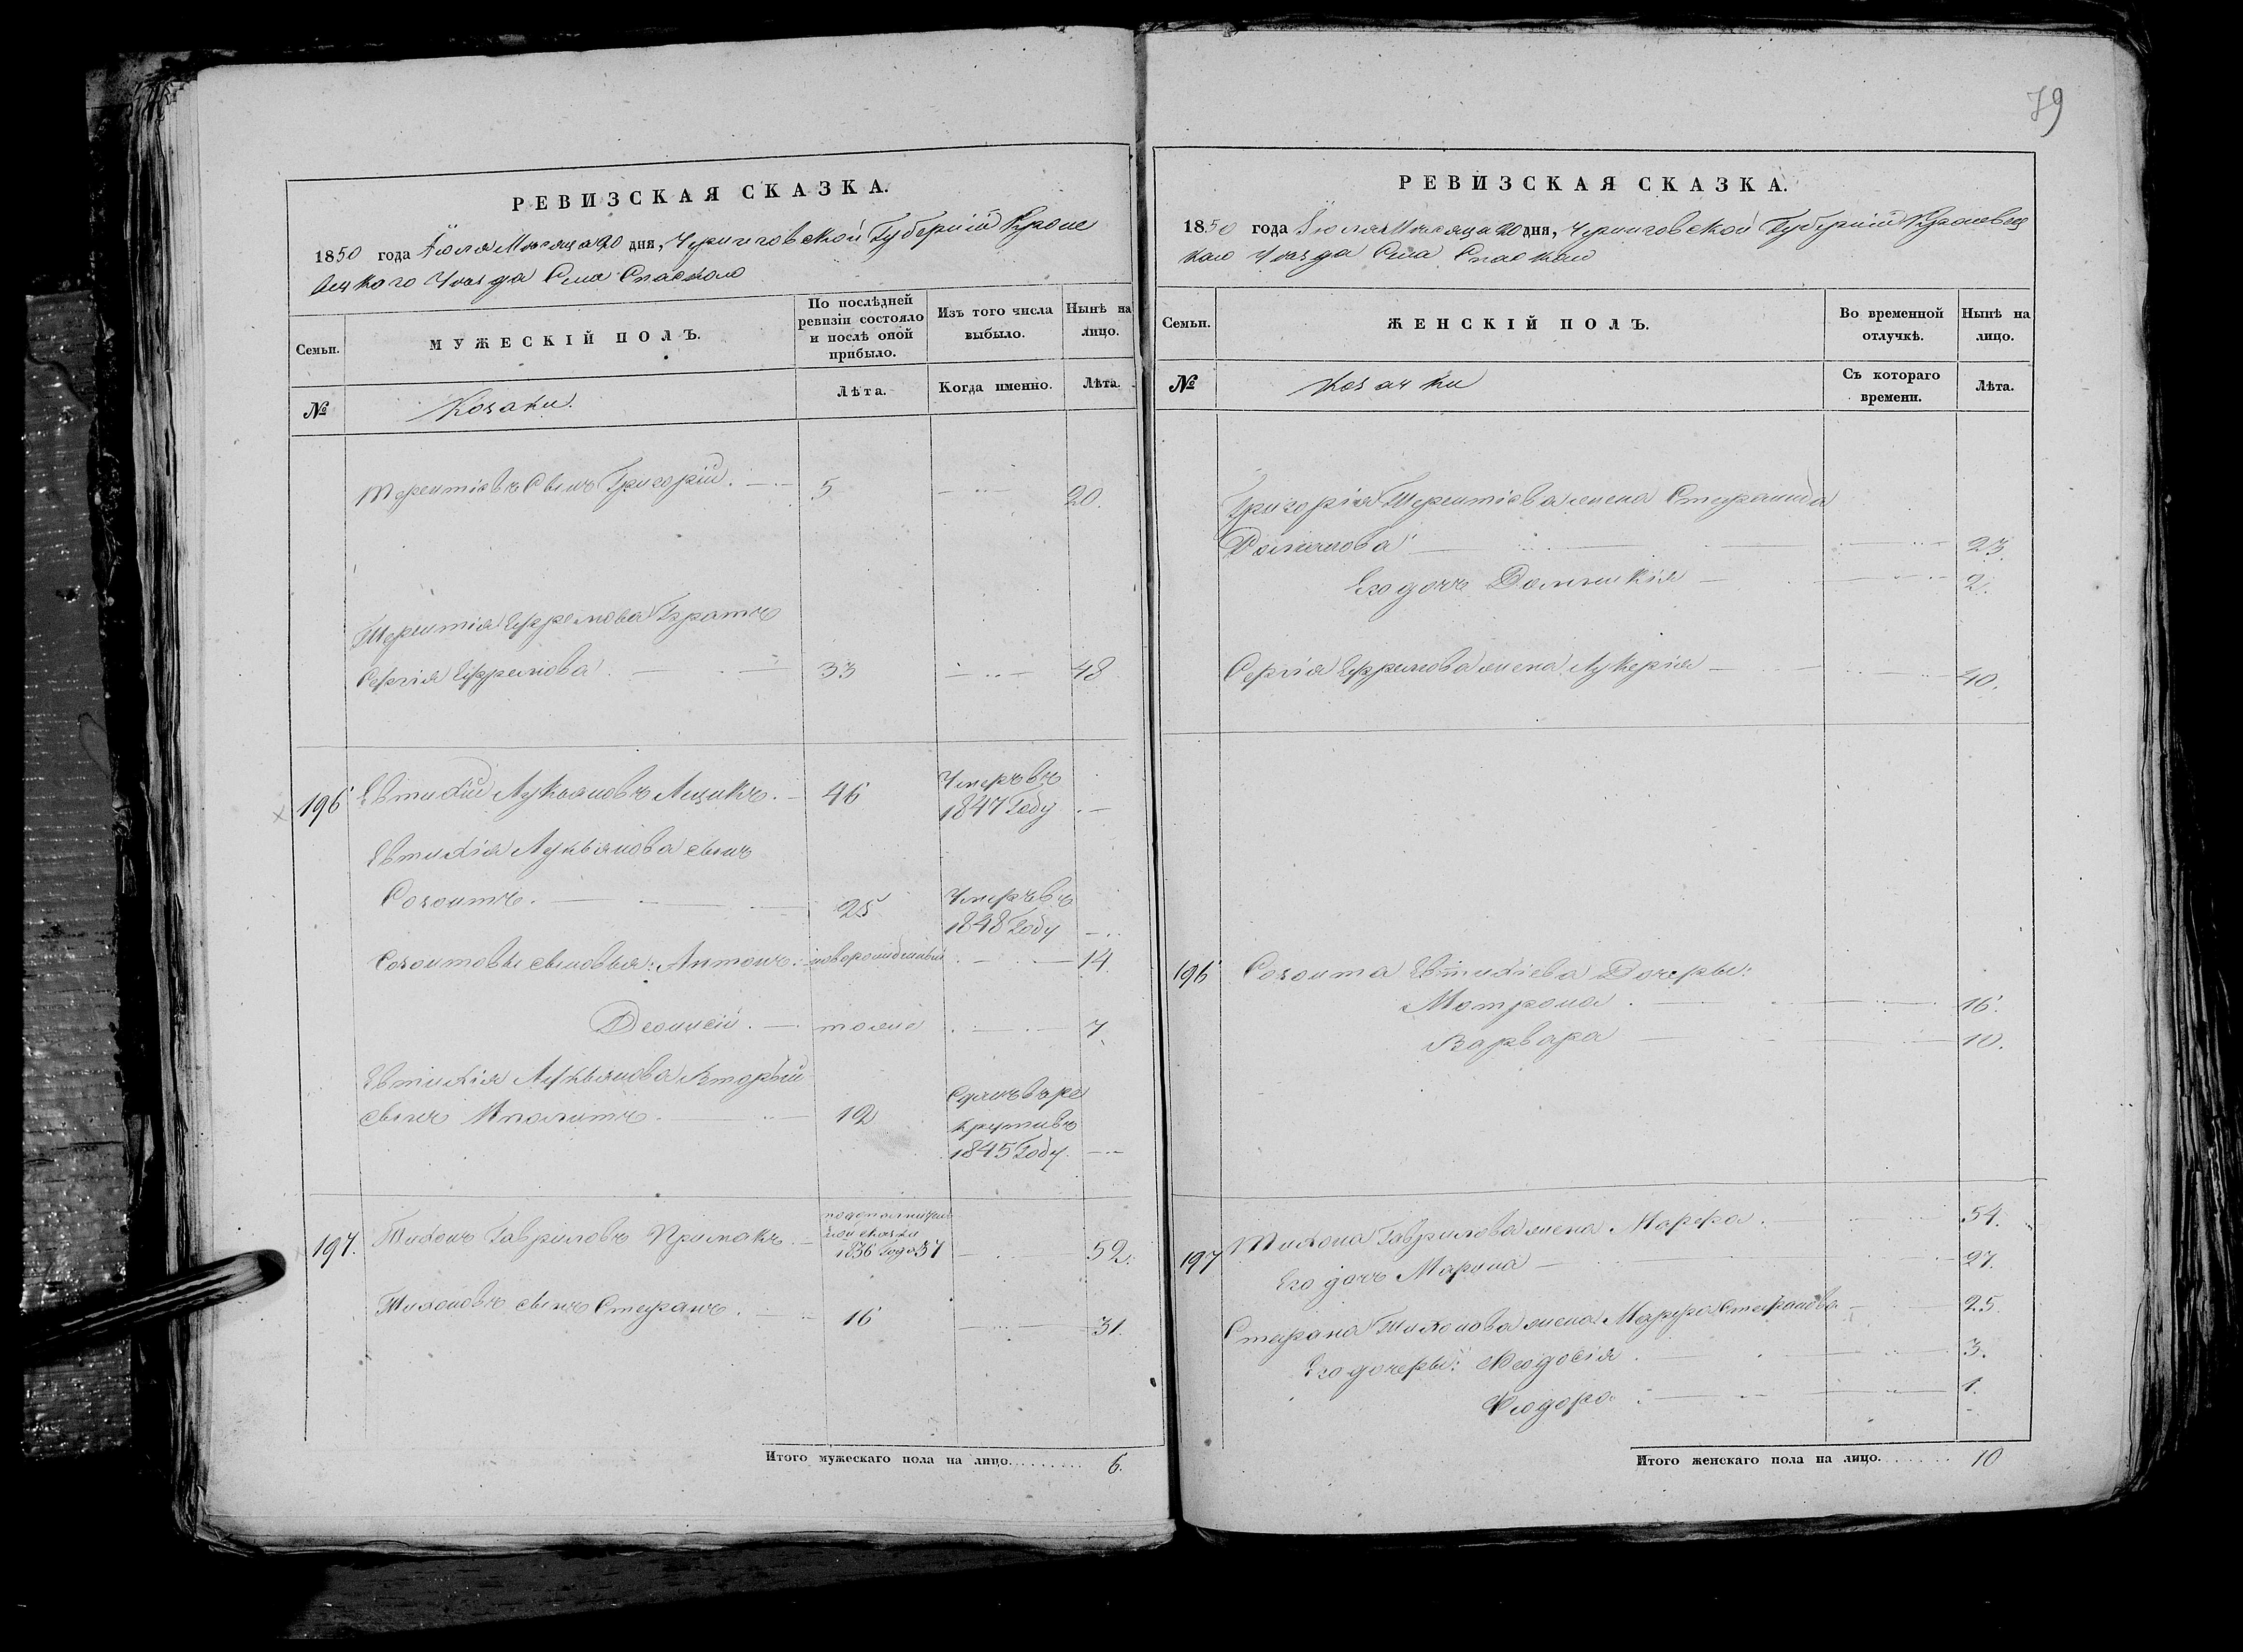 79
РЕВИЗСКАЯ СКАЗКА.
1850 года Июля Мѣсяца 20 дня, Черниговской Губерніи Кроле
вецкаго Уѣзда Села Спаскаго
Семьи.
МУЖЕСКІЙ ПОЛЪ.
По послѣдней
ревизіи состояло
и послѣ оной
прибыло.
Изъ того числа
выбыло.
Нынѣ на
лицо.
№
Козаки.
Лѣта.
Когда именно.
Лѣта.
Терентіевъ Сынъ Григорій. 5 20.
Терентія Ефремова Братъ
Сергія Ефремова. 33 48
196 Евтихій Лукьяновъ Лицикъ. 46 Умеръ въ
1847 Году
Евтихія Лукьянова сынъ
Созонтъ. 25 Умеръ въ
1848 Году
Созонтовы сыновья: Антонъ: новорожденный 14.
Деонисій. тоже 7.
Евтихія Лукьянова Вторый
сынъ Иполитъ. 12 Сданъ въ ре
крутивъ
1845 Году.
197. Тихонъ Гавриловъ Примакъ. по дополнитель
ной сказки
1836 Года 37 52.
Тихоновъ сынъ Стефанъ. 16 31.
Итого мужескаго пола на лицо......... 6.
РЕВИЗСКАЯ СКАЗКА.
1850 года Июля Мѣсяца 20 дня, Черниговской Губерніи Кролевец
каго Уѣзда Села Спаскаго
Семьи.
ЖЕНСКІЙ ПОЛЪ.
Во временной
отлучкѣ.
Нынѣ на
лицо.
№
Козачки
Съ котораго
времени.
Лѣта.
Григорія Терентіева жена Стефанида
23.
Его дочь Домникія 2.
Сергія Ефремова жена Лукерія 40.
196 Созонта Евтихіева Дочеры:
Мотрона. 16.
Варвара 10.
197 Тихона Гаврилова жена Марфа. 54.
Его дочь Марина 27.
Стефана Тихонова жена Марфа Стефанова 25.
Его дочеры: Феодосія. 3.
Феодора 1.
Итого женскаго пола на лицо....... 10